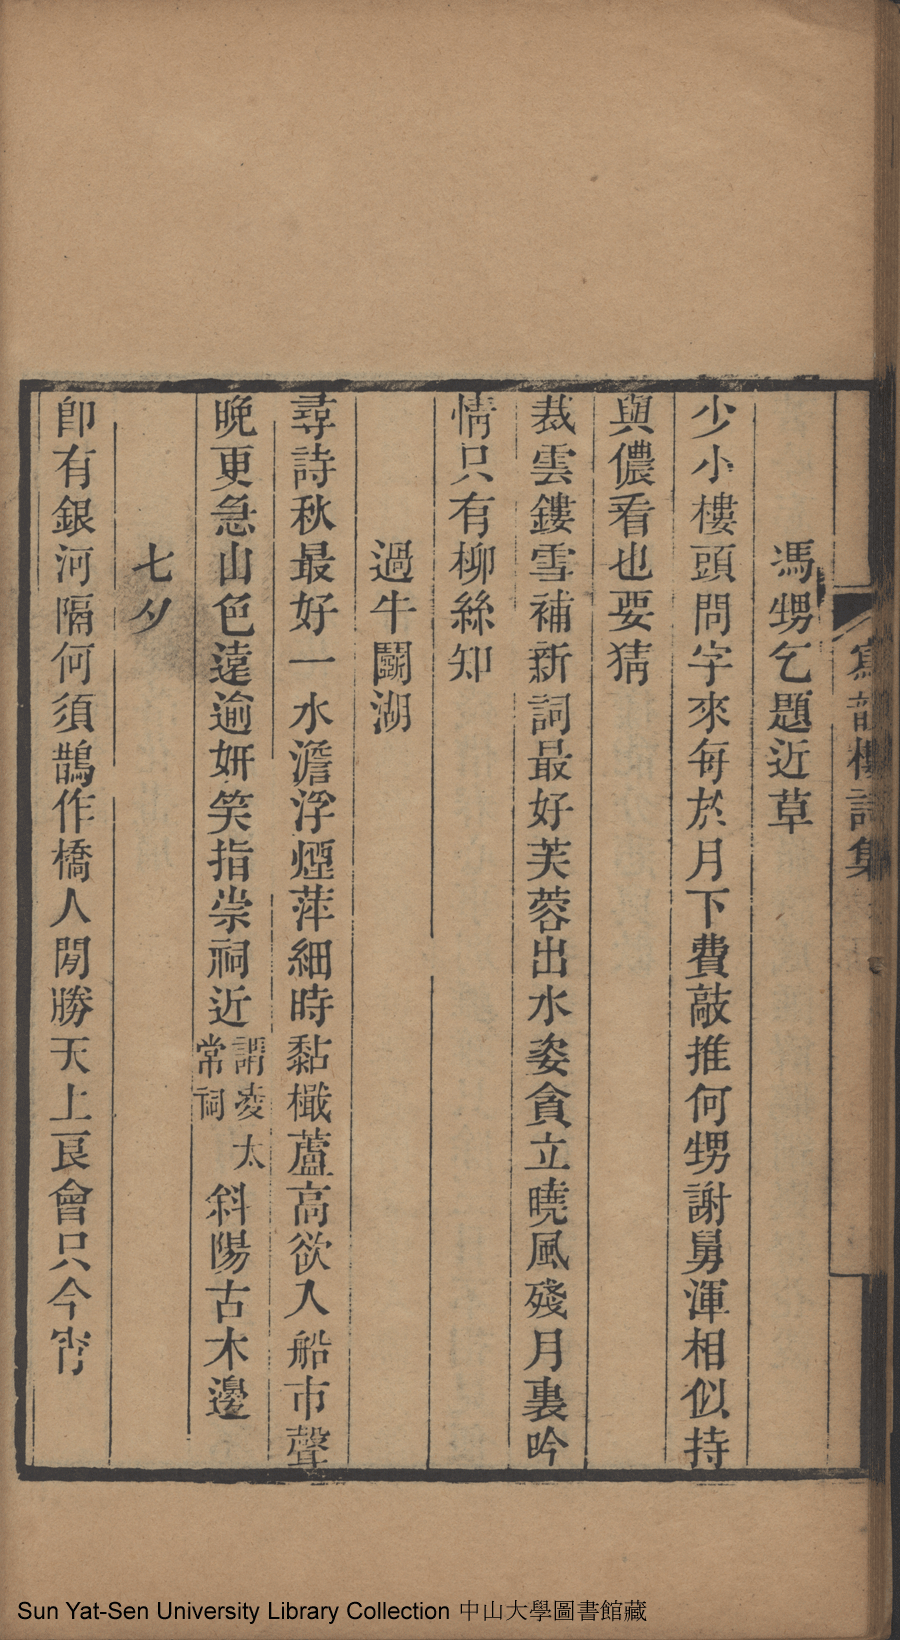 寫韻樓詩集
馮甥乞題近草
少小樓頭問字來每於月下費敲推何甥謝舅渾相似持
與儂看也要猜
裁雲鏤雪補新詞最好芙蓉出水姿貪立曉風殘月裏吟
情只有柳絲知
過牛鬭湖
尋詩秋最好一水澹浮煙萍細時黏檝蘆高欲入船市聲
晚更急山色遠逾妍笑指崇祠近謂凌太常祠斜陽古木邊
七夕
卽有銀河隔何須鵲作橋人閒勝天上良會只今宵
Sun Yat-Sen University Library Collection 中山大學圖書館藏